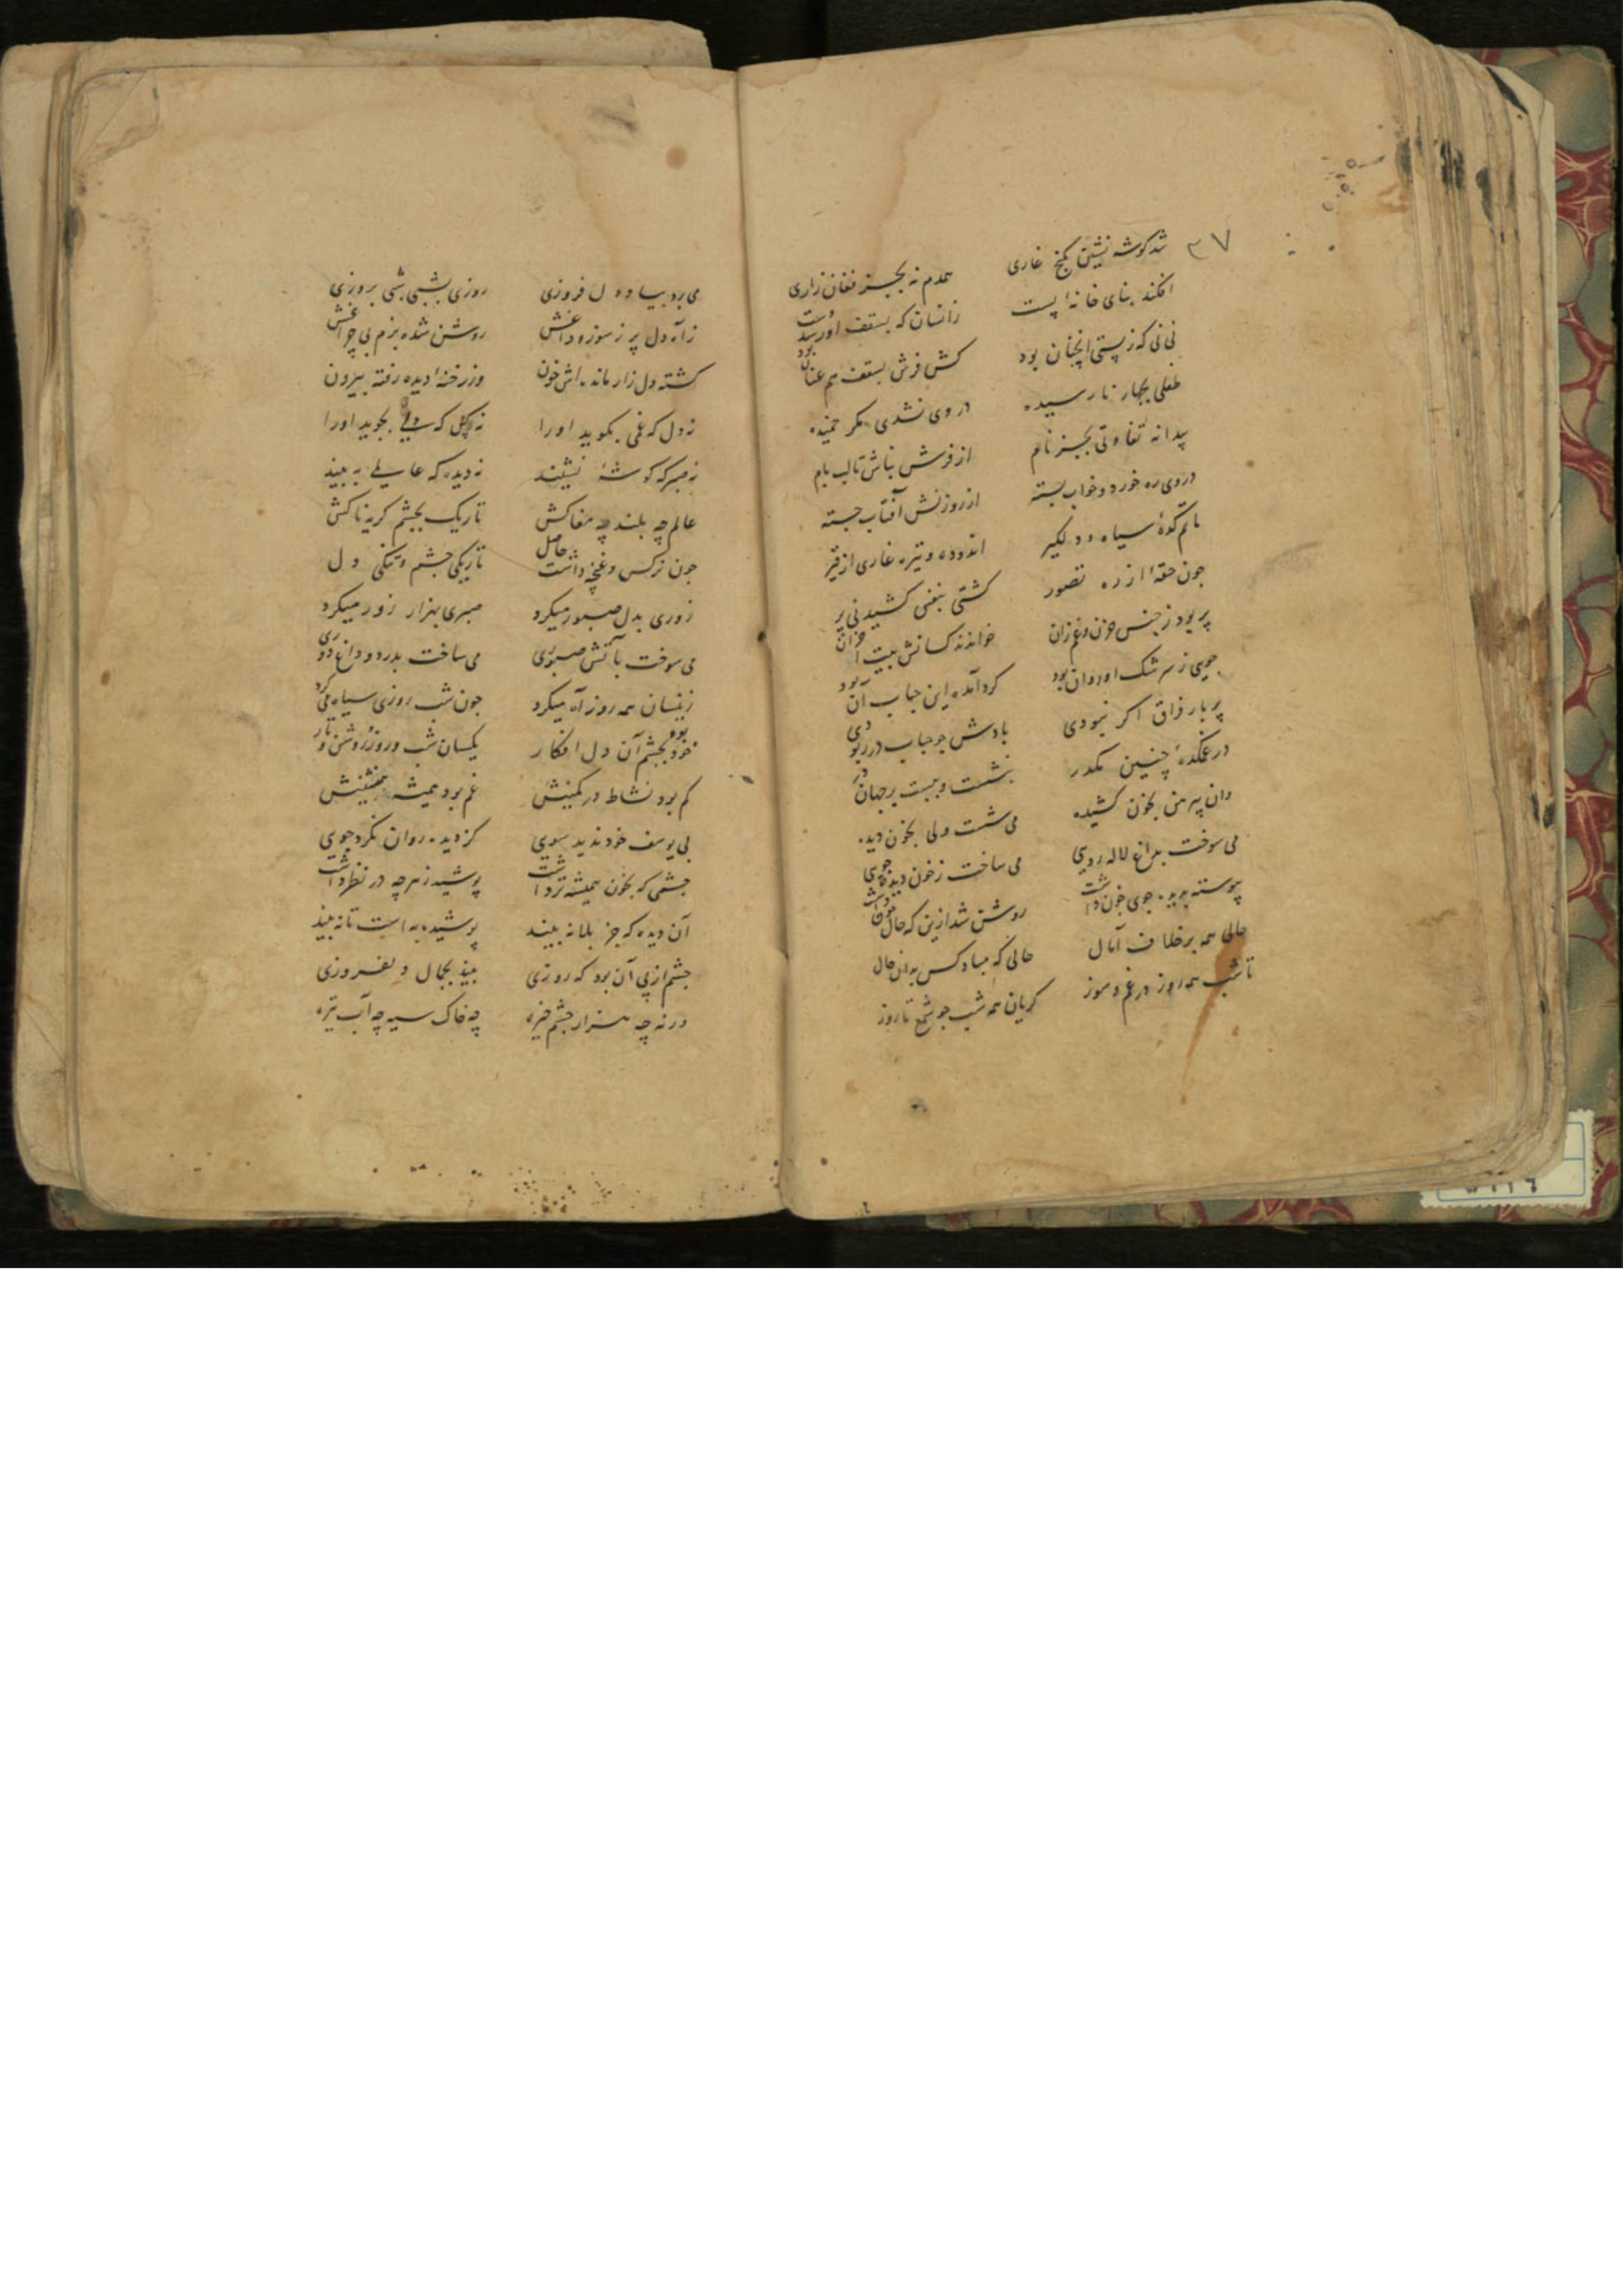 ۳۷
شد گوشه نشین بکنج غاری همدم نه بجز فغان زاری
افکند بنای خانهٔ پست زانسان که بسقف او رسد دست
نی نی که ز پستی انچنان بود کش فرش بسقف هم عنان بود
طفلی بچهار نارسیده در وی نشدی مکر خمیده
پیدا نه تفاوتی بجز نام از فرش بناش تا لب بام
در وی ره خورد و خواب بسته از روزنش آفتاب جسته
ماتم کدهٔ سیاه و دلگیر اندوده و تیره غاری از قیر
چون حقهٔ از ره تصور کشتی بنفس کشیدنی پر
پر بود ز جنس حزن و غم زان خواندند کسانش بیت احزان
جویی ز سرشک او روان بود کرد آمده این حباب آن بود
پر بار فراق اکر نبودی بادش چو حباب در ربودی
در غمکدهٔ چنین مکدر بنشست و ببست بر جهان در
وان پیرهن بخون کشیده می شست ولی بخون دیده
می سوخت بداغ لاله رویی می ساخت ز خون دیده جوی
پیوسته بدیده جوی خون داشت روشن شد ازین که حال چون داشت
حالی همه بر خلاف آمال حالی که مباد کس به آن حال
تا شب همه روز در غم و سوز کریان همه شب چو شمع تا روز
می برد بیاد دل فروزی روزی بشبی شبی بروزی
ز آه دل پر ز سوز و داغش روشن شده بزم بی چراغش
کشته دل زار مانده اش خون وز رخنهٔ دیده رفته بیرون
نه دل که غمی بکوید او را نه بجوید او را
نه صبر که کوشهٔ نشیند نه دیده که عالمی به بیند
عالم چه بلند چه مغاکش تاریک بچشم کریه ناکش
چون نرکس و غنچه داشت حاصل تاریکی چشم و تنکی دل
زوری بدل صبور میکرد صبری بهزار زور میکرد
می سوخت بآتش صبوری می ساخت بدرد و داغ دوری
زینسان همه روز آه میکرد چون شب روزی سیاه می کرد
خود بود بچشم آن دل افکار یکسان شب و روز و روشن و تار
کم بود نشاط در کمینش غم بود همیشه همنشینش
بی یوسف خود ندید سوی کز دیده روان نکرد جوی
چشمی که بخون همیشه تر داشت پوشید ز هر چه در نظر داشت
آن دیده که جز بلا نه بیند پوشیده به است تا نه بیند
چشم از پی آن بود که روزی بیند بجمال دلفروزی
ورنه چه هزار چشم خیره چه خاک سیه چه آب تیره